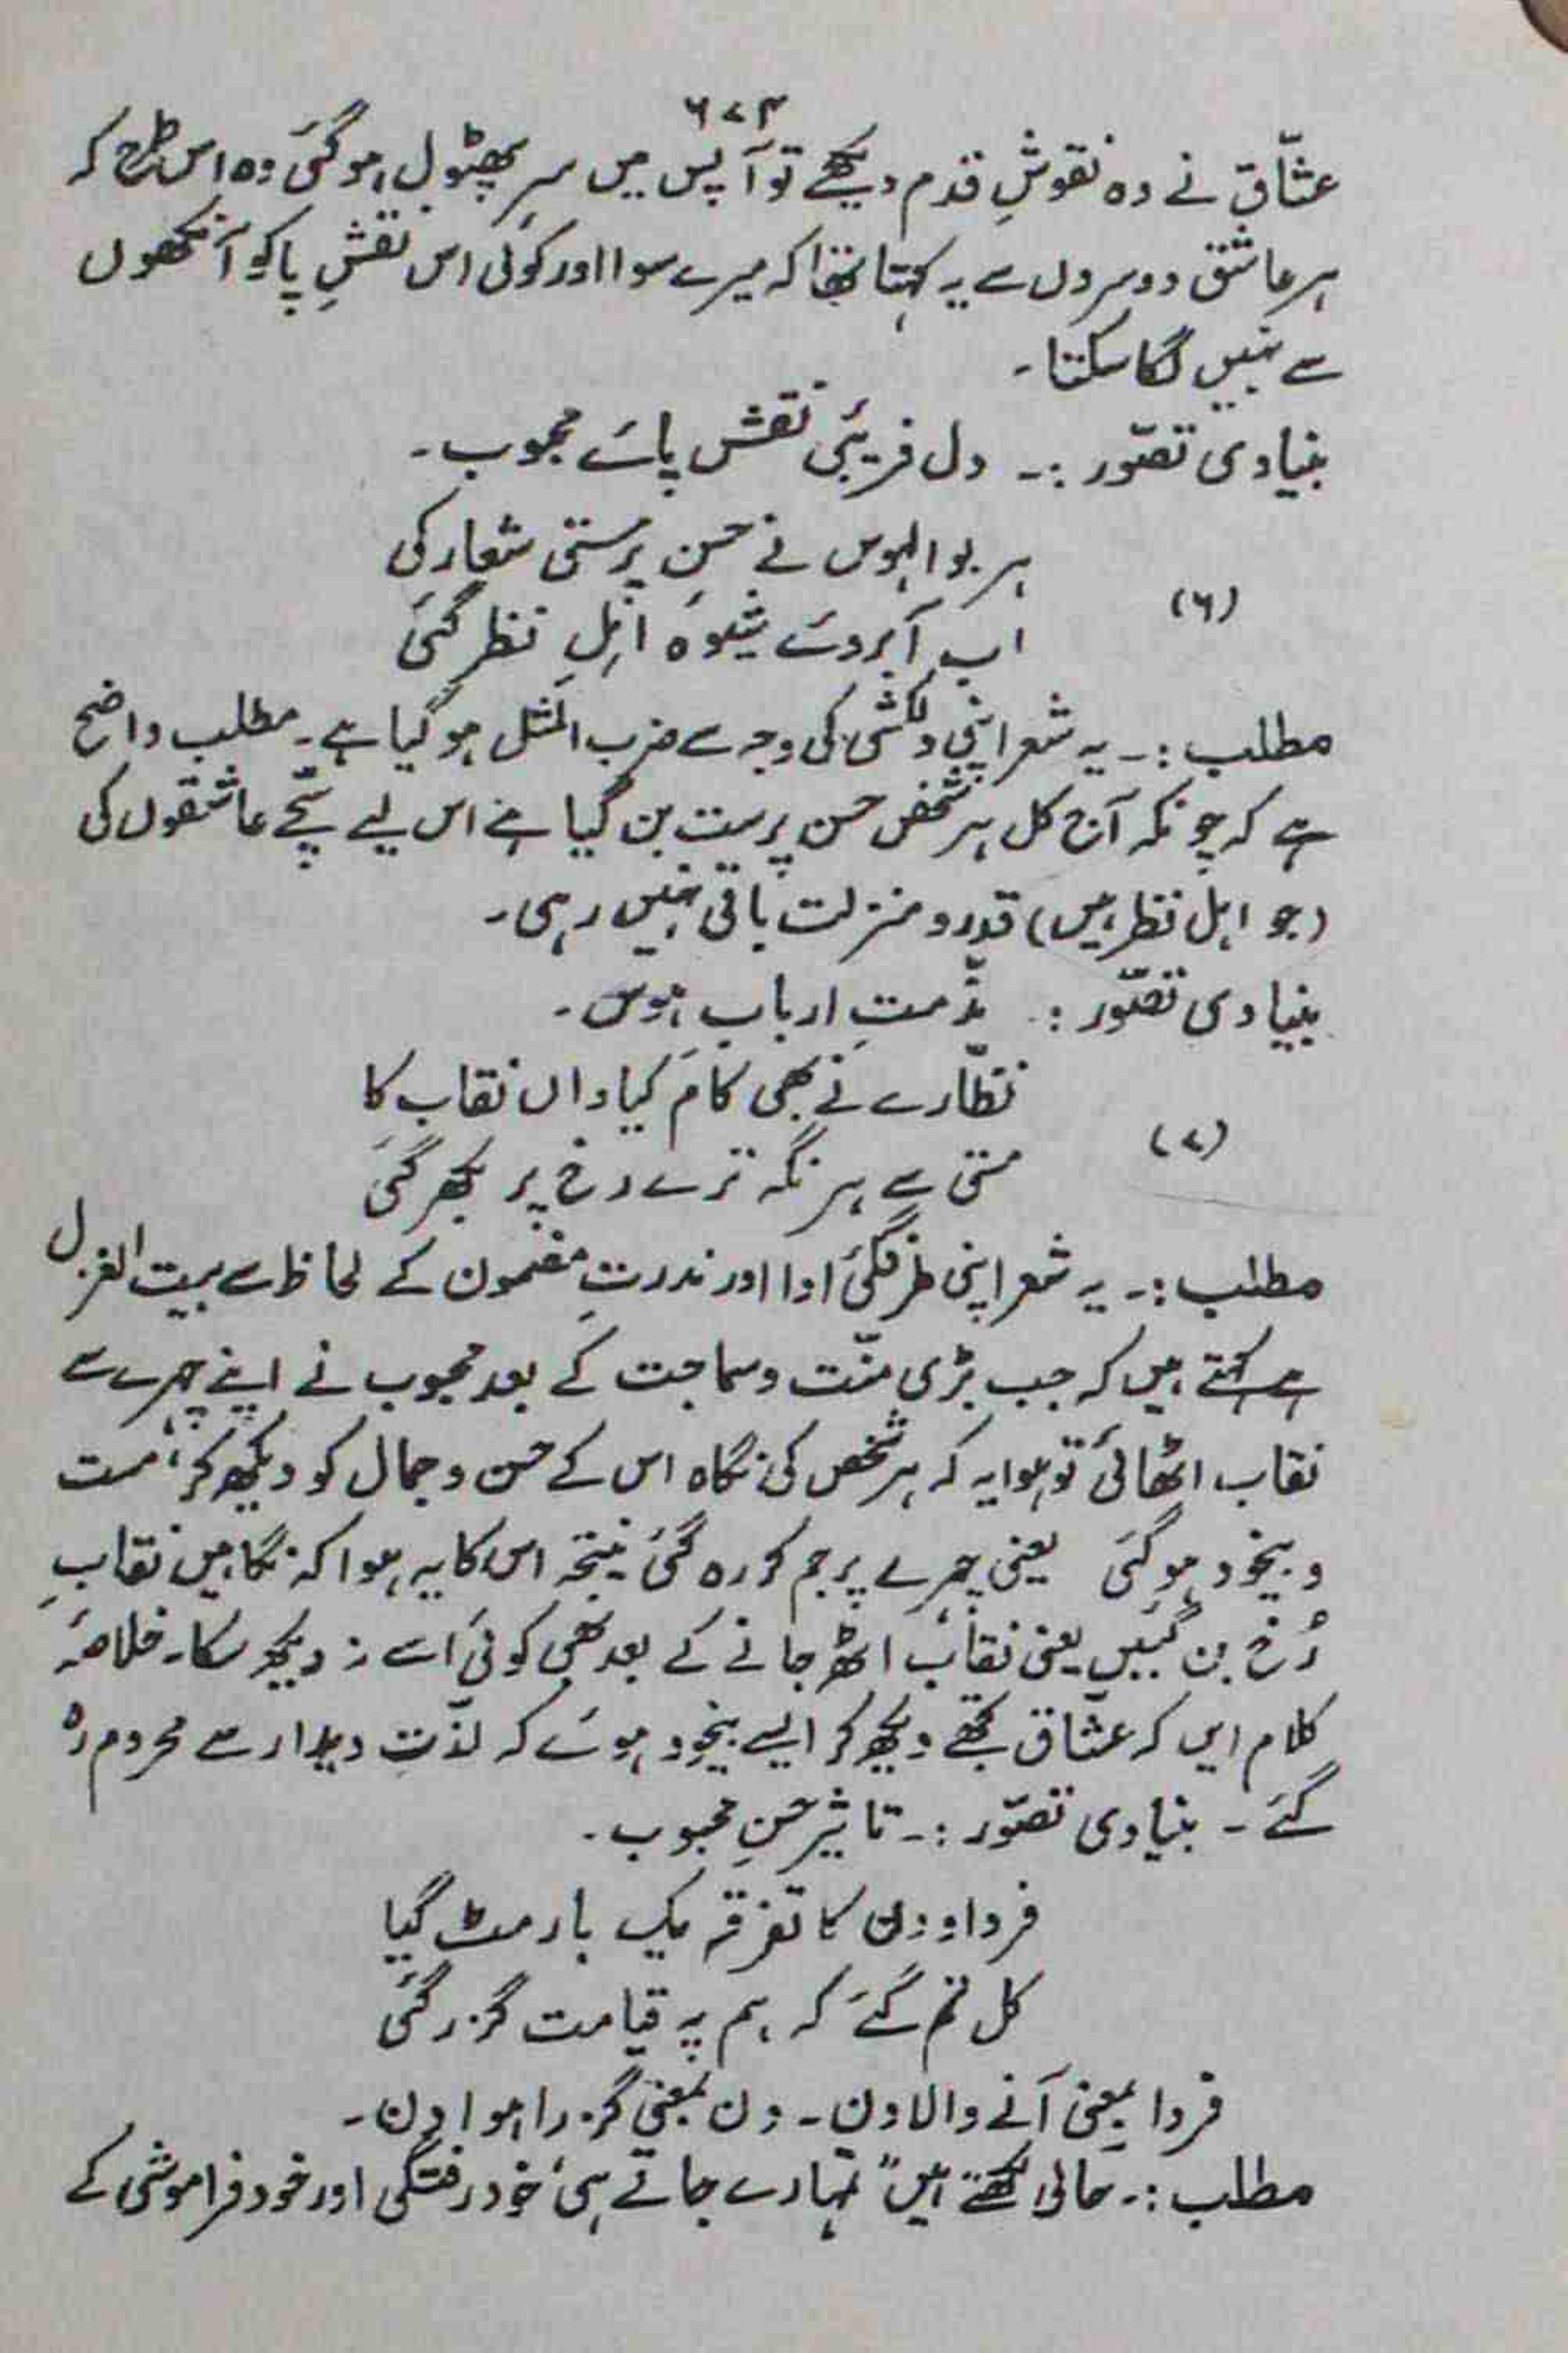 ۶۷۴
عشّاق نے وہ نقوشِ قدم دیکھے تو آپس میں سر پھٹول ہو گئی وہ اس طرح کہ
ہر عاشق دوسروں سے یہ کہتا تھا کہ میرے سوا اور کوئی اس نقشِ پا کو آنکھوں
سے نہیں لگا سکتا۔
بنیادی تصوّر :۔ دل فریبیٔ نقش پائے محبوب۔
ہر بوالہوس نے حسن پرستی شعار کی
(۶)
اب آبروئے شیوۂ اہلِ نظر گئی
مطلب :۔ یہ شعر اپنی دلکشی کی وجہ سے ضرب المثل ہو گیا ہے۔ مطلب واضح
ہے کہ چونکہ آج کل ہر شخص حسن پرست بن گیا ہے اس لیے سچّے عاشقوں کی
(جو اہل نظر ہیں) قدر و منزلت باقی نہیں رہی۔
بنیادی تصوّر : مذّمتِ اربابِ ہوس۔
نظّارے نے بھی کام کیا واں نقاب کا
(۷)
مستی سے ہر نگہ ترے رخ پر بکھر گئی
مطلب :۔ یہ شعر اپنی طرفگیٔ ادا اور ندرتِ مضمون کے لحاظ سے بیت الغزل
ہے کہتے ہیں کہ جب بڑی منّت و سماجت کے بعد محبوب نے اپنے چہرے سے
نقاب اٹھائی تو ہوا یہ کہ ہر شخص کی نگاہ اس کے حسن و جمال کو دیکھ کر، مست
و بیخود ہو گئی یعنی چہرے پر جم کر رہ گئی نتیجہ اس کا یہ ہوا کہ نگاہیں نقابِ
رُخ بن گئیں یعنی نقاب اٹھ جانے کے بعد بھی کوئی اسے نہ دیکھ سکا۔ خلاصۂ
کلام ایں کہ عشّاق تجھے دیکھ کر ایسے بیخود ہوئے کہ لذّتِ دیدار سے محروم رہ
گئے ۔ بنیادی تصوّر :۔ تاثیرِ حسنِ محبوب۔
فردا و دی کا تفرقہ یک بار مٹ گیا
کل تم گئے کہ ہم پہ قیامت گزر گئی
فردا بمعنی آنے والا دن۔ دن بمعنی گزرا ہوا دن۔
مطلب :۔ حالی لکھتے ہیں "تمہارے جاتے ہی خود رفتگی اور خود فراموشی کے